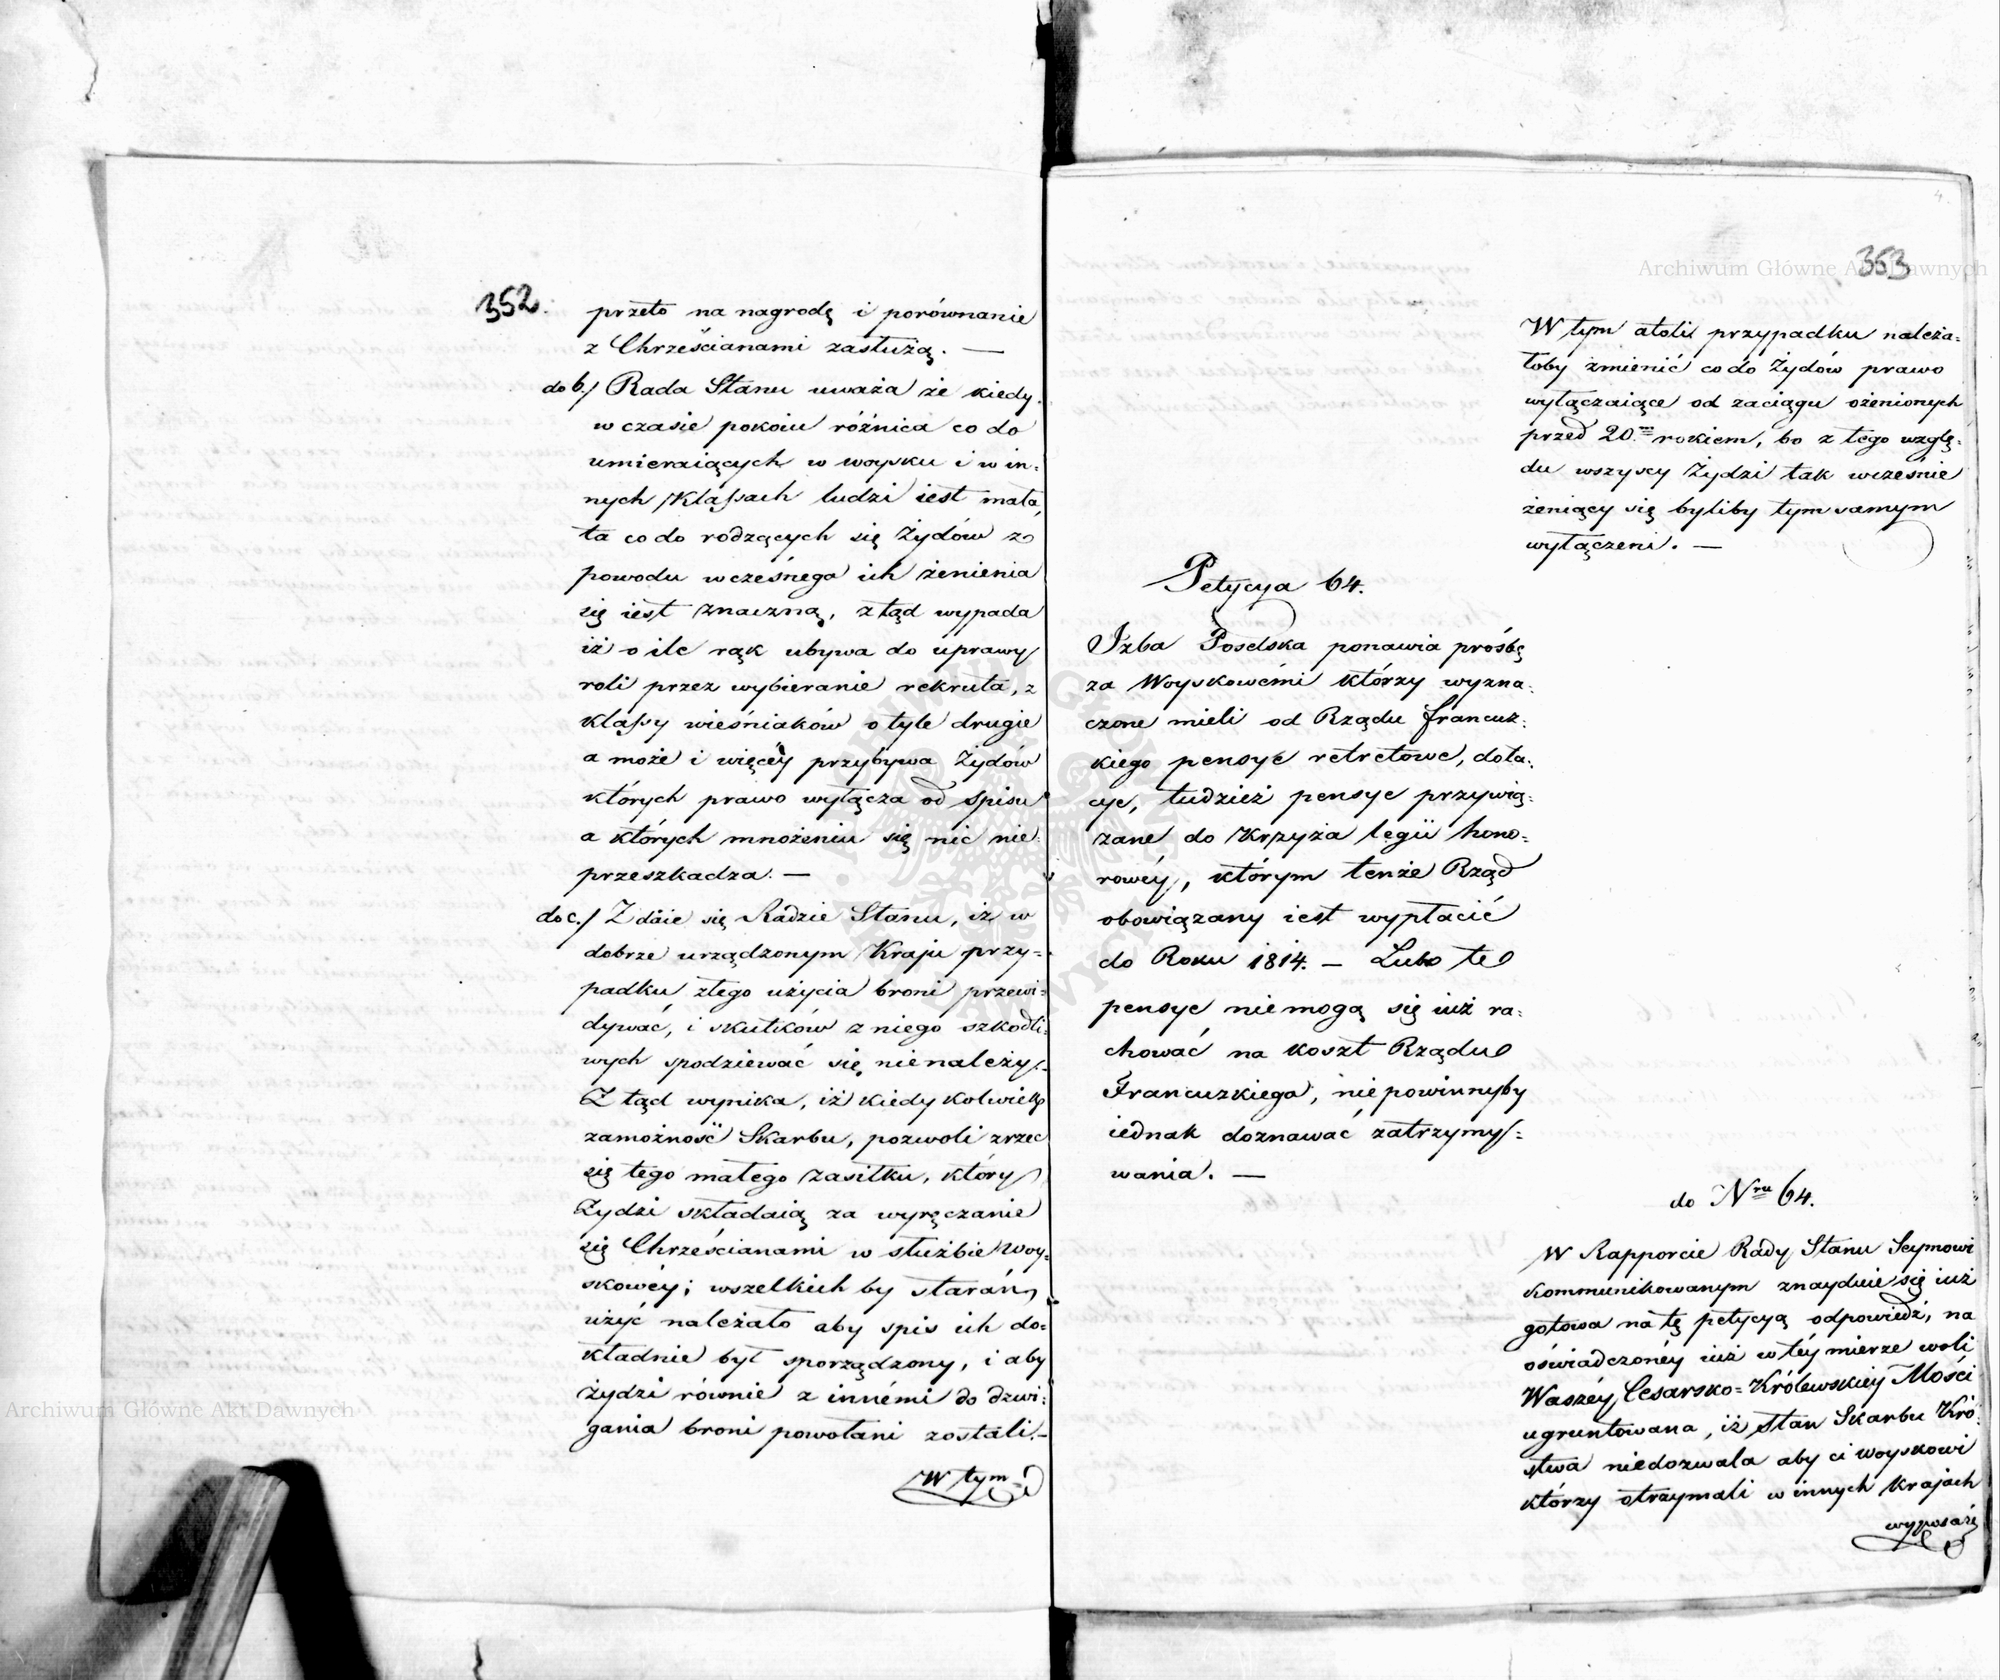 352.
przeto na nagrodę i porównanie
z Chrześcianami zasłużą. —
do b./ Rada Stanu uważa że kiedy
w czasie pokoiu różnica co do
umieraiących w woysku i w in=
nych klassach ludzi iest mała,
ta co do rodzących się Żydów z
powodu wczesnego ich żenienia
się iest znaczną, ztąd wypada
iż o ile rąk ubywa do uprawy
roli przez wybieranie rekruta, z
klassy wieśniaków o tyle drugie
a może i więcéy przybywa Żydów
których prawo wyłącza od spisu
a których mnożeniu się nic nie
przeszkadza. —
do c./ Zdaie się Radzie Stanu, iż w
dobrze urządzonym Kraju przy=
padku złego użycia broni przewi=
dywać, i skutków z niego szkodli=
wych spodziewać się nienależy.
Ztąd wynika, iż kiedykolwiek
zamożność Skarbu, pozwoli zrzec
się tego małego zasiłku, który
Żydzi składaią za wyręczanie
się Chrześcianami w służbie woy=
skowéy; wszelkich by starań
użyć należało aby spis ich do=
kładnie był sporządzony, i aby
żydzi równie z innémi do dzwi=
gania broni powołani zostali. —
W tym
Archiwum Główne Akt Dawnych
353
Archiwum Główne Akt Dawnych
W tym atoli przypadku należa=
łoby zmienić co do Żydów prawo
wyłączaiące od zaciągu ożenionych
przed 20.m rokiem, bo z tego wzglę=
du wszyscy Żydzi tak wcześnie
żeniący się byliby tym samym
wyłączeni. —
Petycya 64.
Izba Poselska ponawia prośbę
za Woyskowémi którzy wyzna=
czone mieli od Rządu francuz=
kiego pensye retretowe, dota=
cye, tudzież pensye przywią=
zane do Krzyża legii hono=
rowéy, którym tenże Rząd
obowiązany iest wypłacić
do Roku 1814. — Lubo te
pensye niemogą się iuż ra=
chować na koszt Rządu
Francuzkiego, niepowinnyby
iednak doznawać zatrzymy=
wania. —
do Nru 64.
W Rapporcie Rady Stanu Seymowi
kommunikowanym znayduie się iuż
gotowa na tę petycyą odpowiedź, na
oświadczonéy iuż w téy mierze woli
Waszéy Cesarsko=Królewskiéy Mości
ugruntowana, iż stan Skarbu Kró=
stwa niedozwala aby ci woyskowi
którzy otrzymali w innych Krajach
wyposaże